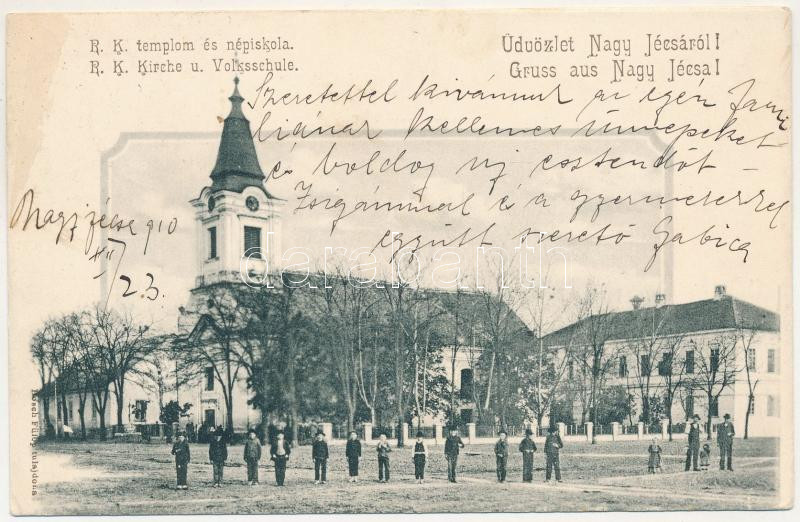 R. K. templom és népiskola.
R. K. Kirche u. Volksschule.
Üdvözlet Nagy Jécsáról!
Gruss aus Nagy Jécsa!
Szeretettel kivánunk az egén Jani
liának kellemes ünnepeket
és boldog uj esztendőt –
Zsigánnal és a gyermekekkel
együtt szerető Gabica
Nagyjécsa 910
XII/23.
darabanth
Rösch Fülöp tulajdona